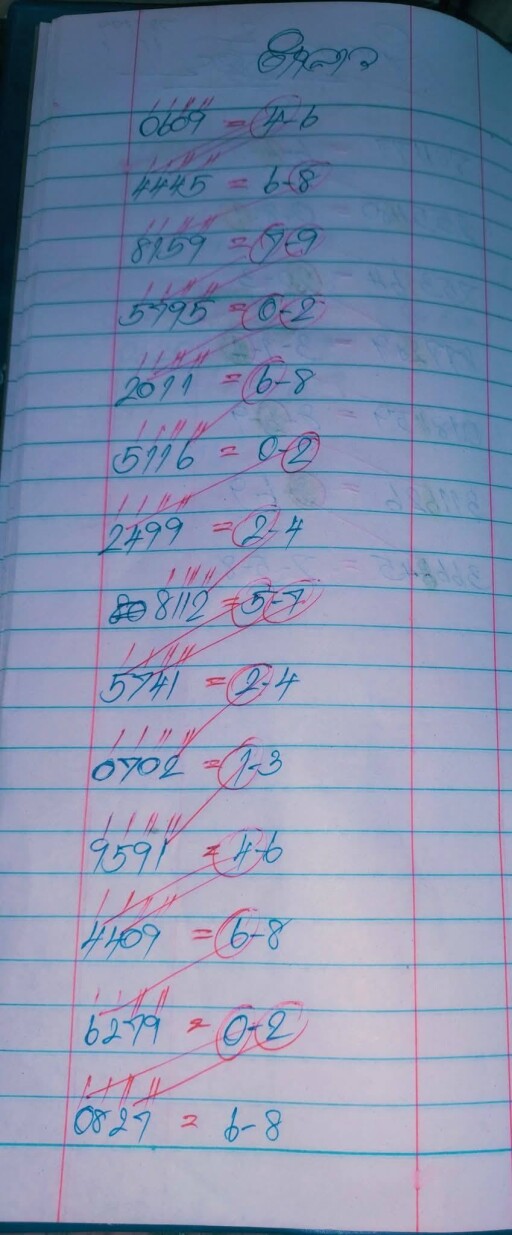 ฮานอย
0609 = 4-6
4445 = 6-8
8159 = 7-9
5795 = 0-2
2011 = 6-8
5116 = 0-2
2499 = 2-4
8112 = 5-7
5741 = 2-4
0702 = 1-3
9591 = 4-6
4409 = 6-8
6279 = 0-2
0827 = 6-8